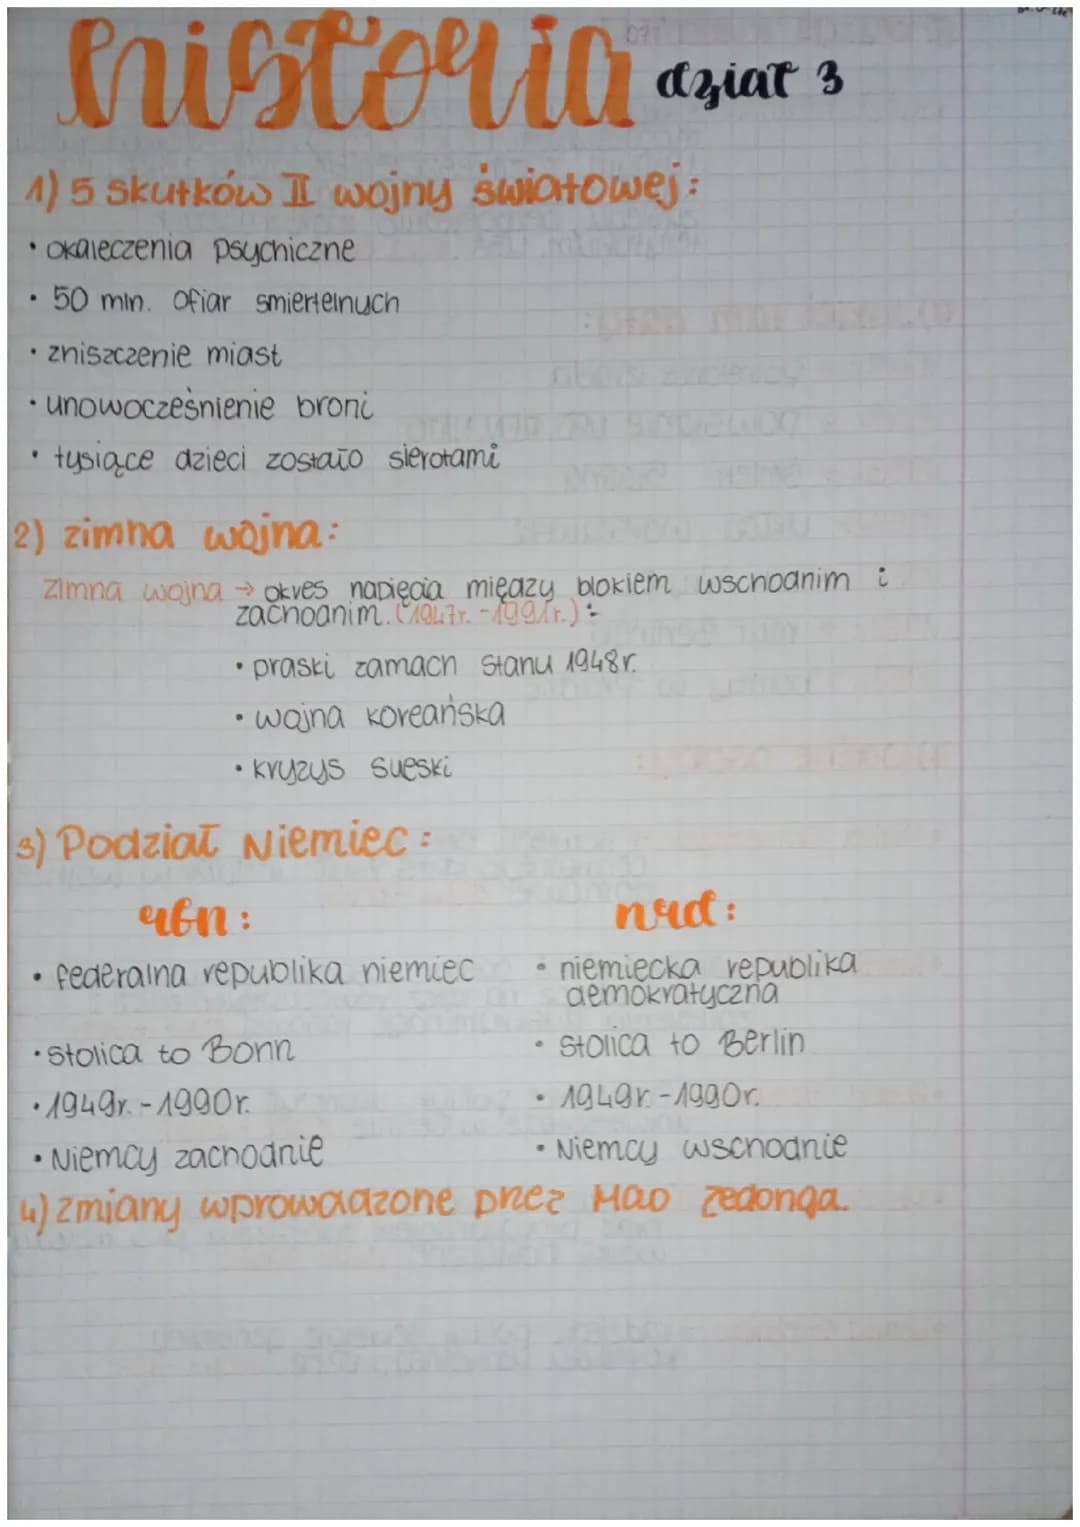 historia dział 3
1) 5 skutków II wojny światowej:
• okaleczenia psychiczne
• 50 mln. ofiar smiertelnych
• zniszczenie miast
• unowocześnienie broni
• tysiące dzieci zostało sierotami
2) zimna wojna:
zimna wojna → okres napięcia między blokiem wschodnim i
zachodnim. (1947r. - 1991r.):
• praski zamach stanu 1948r.
• wojna koreańska
• kryzys sueski
3) Podział Niemiec:
rfn:
• federalna republika niemiec
• stolica to Bonn
• 1949r. - 1990r.
• Niemcy zachodnie
nrd:
• niemiecka republika
demokratyczna
• stolica to Berlin
• 1949r. - 1990r.
• Niemcy wschodnie
4) zmiany wprowadzone przez Mao Zedonga.